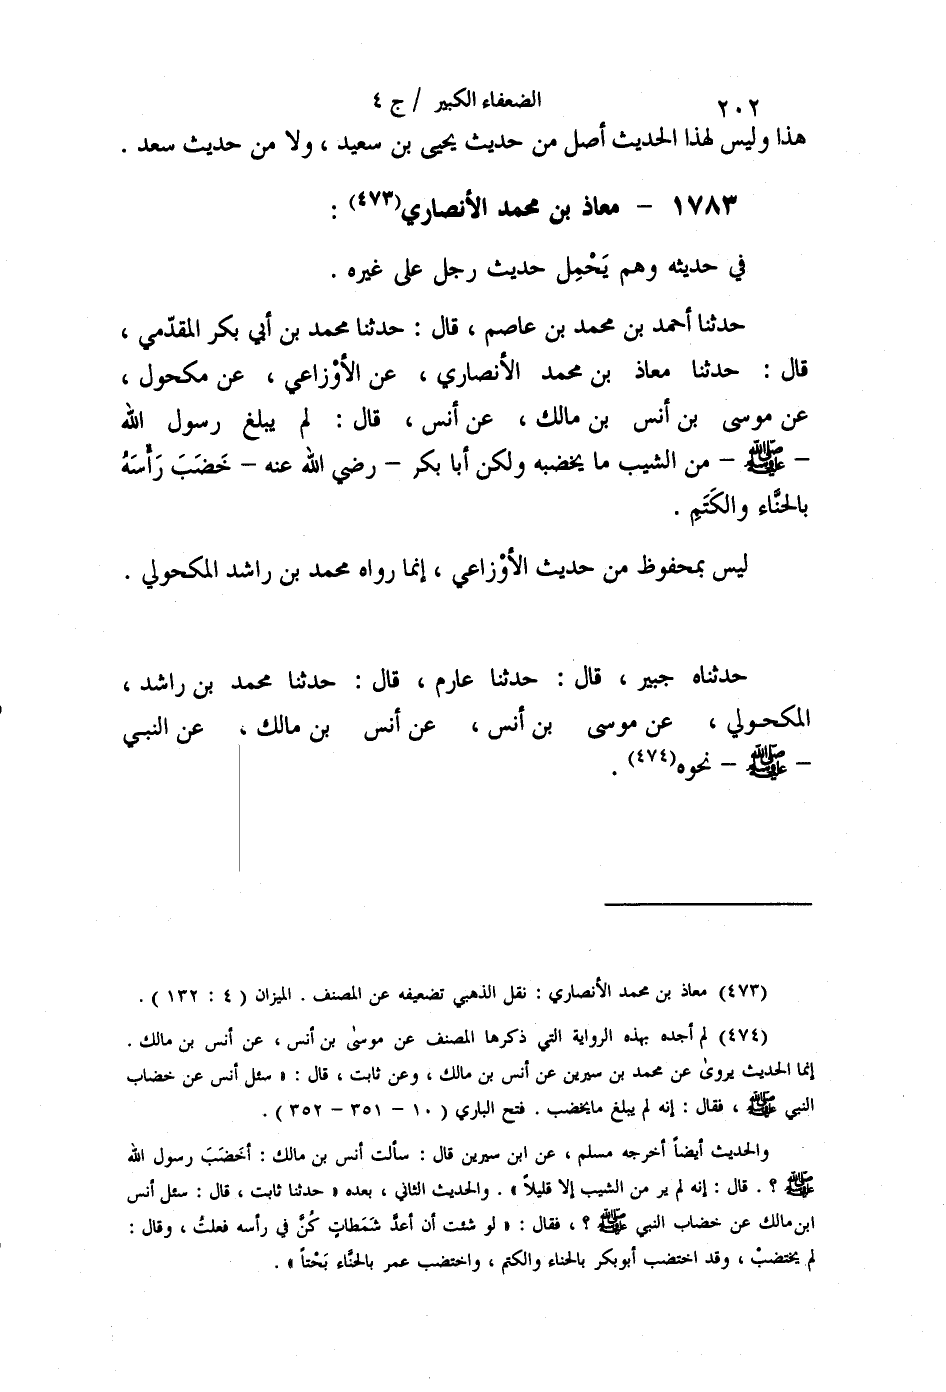 ٢٠٢ الضعفاء الكبير / ج ٤
هذا وليس لهذا الحديث أصل من حديث يحيى بن سعيد ، ولا من حديث سعد .
١٧٨٣ – معاذ بن محمد الأنصاري(٤٧٣) :
في حديثه وهم يَحْمِل حديث رجل على غيره .
حدثنا أحمد بن محمد بن عاصم ، قال : حدثنا محمد بن أبي بكر المقدّمي ،
قال : حدثنا معاذ بن محمد الأنصاري ، عن الأوْزاعي ، عن مكحول ،
عن موسى بن أنس بن مالك ، عن أنس ، قال : لم يبلغ رسول الله
– ﷺ – من الشيب ما يخضبه ولكن أبا بكر – رضي الله عنه – خَضَبَ رَأْسَهُ
بالحنَّاء والكَتَمِ .
ليس بمحفوظ من حديث الأوْزاعي ، إنما رواه محمد بن راشد المكحولي .
حدثناه جبير ، قال : حدثنا عارم ، قال : حدثنا محمد بن راشد ،
المكحولي ، عن موسى بن أنس ، عن أنس بن مالك ، عن النبي
– ﷺ – نحوه(٤٧٤) .
(٤٧٣) معاذ بن محمد الأنصاري : نقل الذهبي تضعيفه عن المصنف . الميزان ( ٤ : ١٣٢ ) .
(٤٧٤) لم أجده بهذه الرواية التي ذكرها المصنف عن موسىٰ بن أنس ، عن أنس بن مالك .
إنما الحديث يروىٰ عن محمد بن سيرين عن أنس بن مالك ، وعن ثابت ، قال : « سئل أنس عن خضاب
النبي ﷺ ، فقال : إنه لم يبلغ مايخضب . فتح الباري ( ١٠ – ٣٥١ – ٣٥٢ ) .
والحديث أيضاً أخرجه مسلم ، عن ابن سيرين قال : سألت أنس بن مالك : أخَضَبَ رسول الله
ﷺ ؟ . قال : إنه لم ير من الشيب إلا قليلاً » . والحديث الثاني ، بعده « حدثنا ثابت ، قال : سئل أنس
ابن مالك عن خضاب النبي ﷺ ؟ ، فقال : « لو شئت أن أعدَّ شَمَطاتٍ كُنَّ في رأسه فعلتُ ، وقال :
لم يختضبْ ، وقد اختضب أبوبكر بالحناء والكتم ، واختضب عمر بالحنَّاء بَحْتاً » .